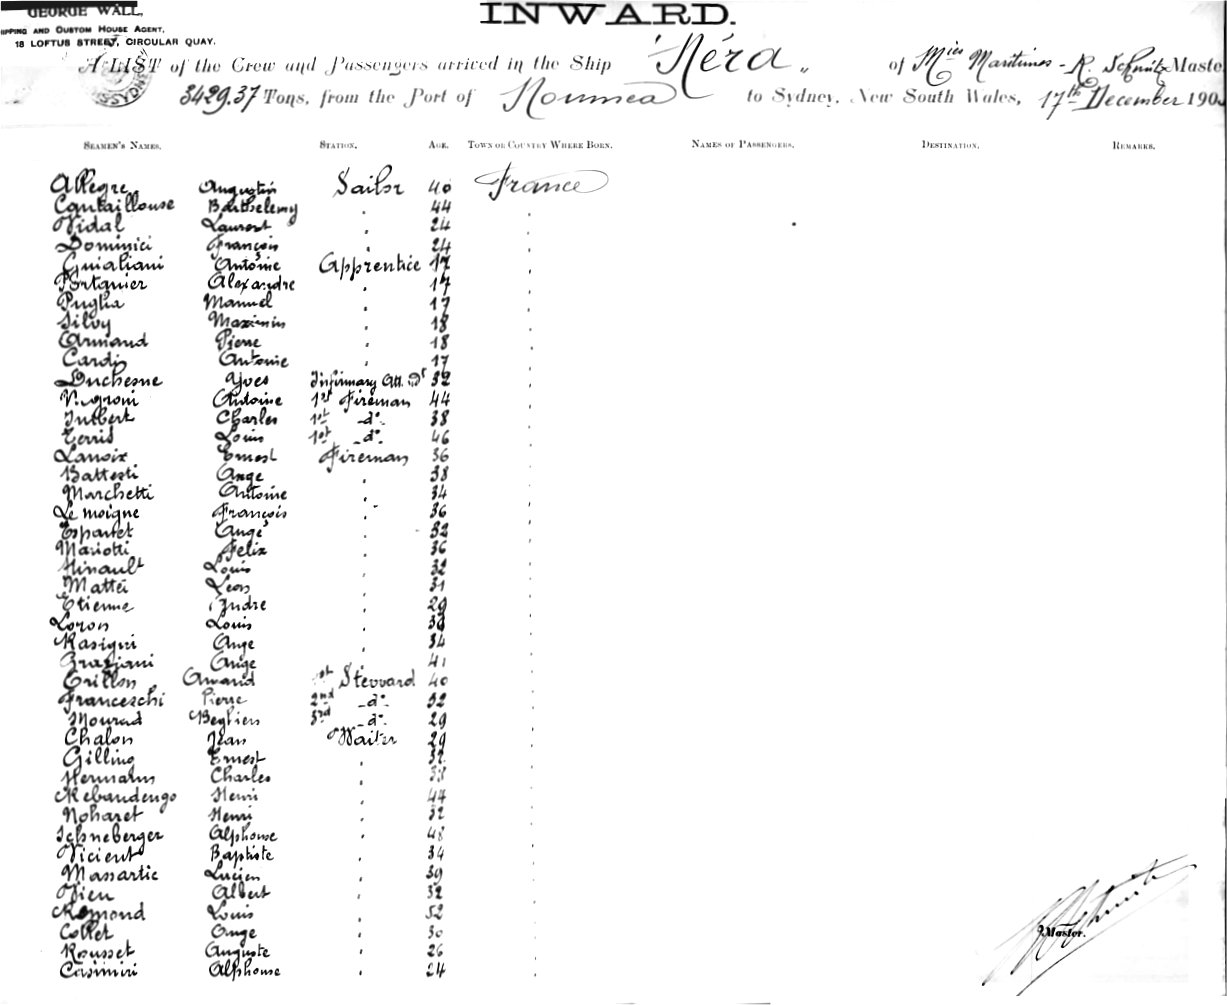 GEORGE WALL,
IPPING AND CUSTOM HOUSE AGENT,
18 LOFTUS STREET, CIRCULAR QUAY.
INWARD.
A LIST of the Crew and Passengers arrived in the Ship "Néra" of Mies Maritimes - R. Schmitz Maste
3429.37 Tons, from the Port of Noumea to Sydney, New South Wales, 17th December 190
SYDNEY
SEAMEN'S NAMES. STATION. AGE. TOWN OR COUNTRY WHERE BORN. NAMES OF PASSENGERS. DESTINATION. REMARKS.
Allègre Augustin Sailor 40 France
Cantaillouse Barthelemy " 44 "
Vidal Laurent " 24 "
Dominici François " 24 "
Guialiani Antoine Apprentice 17 "
Portanier Alexandre " 17 "
Puglia Manuel " 17 "
Silvy Maximin " 18 "
Armand Pierre " 18 "
Cardi Antoine " 17 "
Duchesne Yves Infirmary Att. dt 32 "
Antoine 1st Fireman 44 "
Imbert Charles 1st do. 38 "
Terris Louis 1st do. 46 "
Lanoix Ernest Fireman 36 "
Battesti Ange " 38 "
Marchetti Antoine " 34 "
Le moigne François " 36 "
Espanet Ange " 32 "
Mariotti Felix " 36 "
Hinault Louis " 32 "
Mattei Léon " 31 "
Etienne Andre " 29 "
Loron Louis " "
Rasigni Ange " 34 "
Graziani Ange " 41 "
Crillon Amand 1st Stevvard 40 "
Franceschi Pierre 2nd do. 32 "
Mourad Beghien 3rd do. 29 "
Chalon Jean Waiter 29 "
Gilling Ernest " 32 "
Hermann Charles " 38 "
Rebaudengo Henri " 44 "
Noharet Henri " 32 "
Schneberger Alphonse " 48 "
Vicient Baptiste " 34 "
Massartic Lucien " 39 "
Vieu Albert " 32 "
Remond Louis " 52 "
Collet Ange " 30 "
Rousset Auguste " 26 "
Casimiri Alphonse " 24 "
Master.